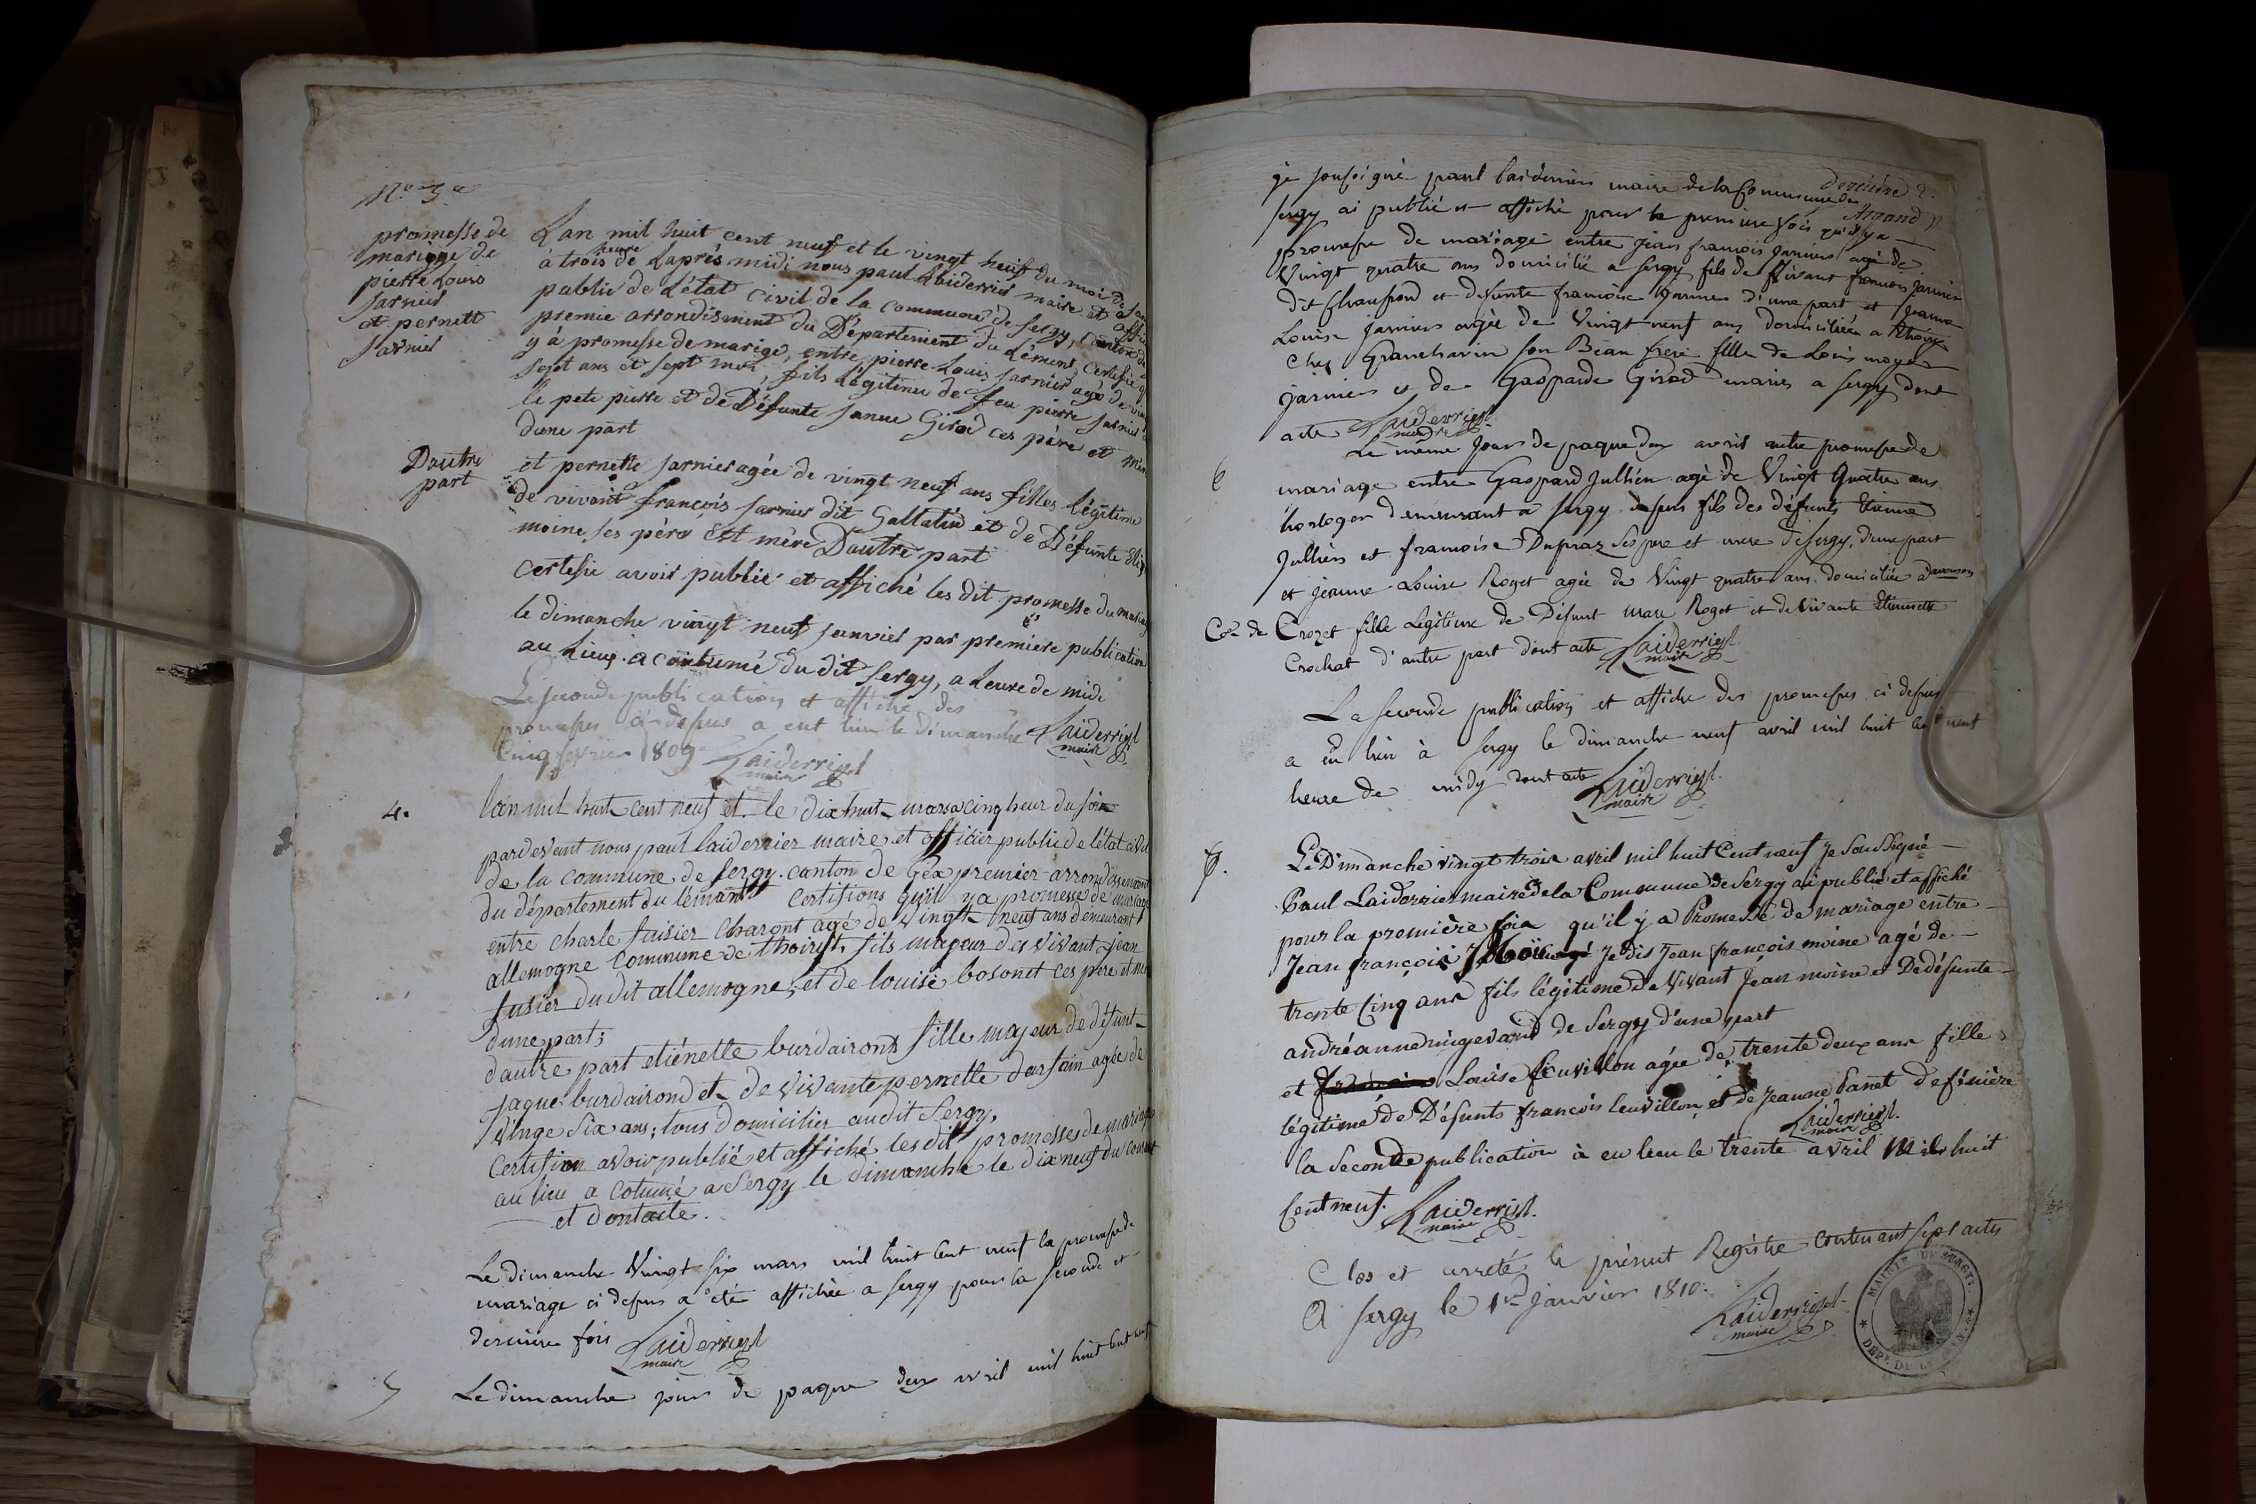 No 3e
promesse de
mariage de
pierre Louis
Jarnier
et pernette
Jarnier
Lan mil huit cent neuf et le vingt heuit du moi de
à trois heure de Laprès midi nous paul Laiderrier maire et
public de Létat civil de la commune de Sergy, canton de
premie arrondisment du Département du Lément, certifie
y à promesse de marige, entre pierre Louis Jarnier agé de
Sept ans et sept moi, fils Légitime de feu pierre Jarnier
le pete pierre et de Défunte Janne Girod ces père et
dune part
Dautre
part
et pernette Jarnier agée de vingt neuf ans filles légitime
de vivant françois Jarnier dit Gallatin et de Défunte
moine, ses père est mère Dautre part
certefie avoir publiée et affiché les dit promesse du
le dimanche vingt neuf Janvier par première publication
au Lieux acoutumé du dit Sergy, a Leure de midi
La seconde publication et affiche des
promesses ci-dessus a eut lieu le Dimanche Laiderrier
maire
Cinq fevrier 1809 Laiderrier
maire
4.
lan mil huit cent neuf et le dix huit mars a cinq heur du soir
pardevant nous paul laiderrier maire et officier public de létat civil
de la commune de Sergy canton de Gex premier arrondissement
du département du lémant certifions quil ya promesse de mariage
entre charle fusier charont agé de vingt neuf ans demeurant
allemogne commune de thoiry, fils majeur des vivant jean
fusier du dit allemogne, et de louise bosonet ces pere et
dune part;
dautre part etiénette burdairont fille majeur de défunt
Jaque burdairond et de vivante pernette dassain agée de
vinge six ans; tous domicilier audit Sergy,
Certifion avoir publié et affiché les dit promesses de mariage
au lieu a cotumé a Sergy le dimanche le dix neuf du courant
et dontacte.
Le dimanche Vingt six mars mil huit cent neuf la promesse de
mariage ci dessus a été affichée a Sergy pour la seconde et
derniere fois Laiderrier
maire
5
Le dimanche jour de paque deux avril mil huit cent neuf
je soussigné paul laiderrier maire de la Commune de
Sergy ai publié et affiché pour la premiere fois qu'il y a
promesse de mariage entre jean françois Jarnier agé de
Vingt quatre ans domicilié a Sergy fils de vivant françois Jarnier
dit et defunte françoise d'une part et Jeanne
Louise Jarnier agée de Vingt neuf ans domiciliée a thoiry
chez Grancharin son Beau frere fille de Louis moyse
Jarnier et de Gasparde Girod maries a Sergy dont
acte Laiderrier
maire
Le meme Jour de paque deux avril autre promesse de
6
mariage entre Gaspard Jullien agé de Vingt Quatre ans
horloger demeurant a Sergy fils des défunts Etienne
Jullien et françoise Dupraz ses pere et mere de Sergy, d'une part
et jeanne Louise Roget agée de Vingt quatre ans domiciliée a
Cne de Crozet fille Légitime de Défunt marc Roget et de Vivante Etiennette
Crochat d'autre part dont acte Laiderrier
maire
La seconde publication et affiche des promesses ci dessus
a eu lieu à Sergy le dimanche neuf avril mil huit cent neuf
heure de midy dont acte Laiderrier
maire
7.
Le Dimanche vingt trois avril mil huit Cent neuf je soussigné
Paul Laiderrier maire de la Commune de Sergy ai publié et affiché
pour la première fois qu'il y a Promesse de mariage entre
Jean françois Je dis Jean françois moine agé de
trente Cinq ans fils légitime de Vivant Jean moine et De défunte
andréanne de Sergy d'une part
et Louise Leuvillon agée de trente deux ans fille
légitime de Défunts françois Leuvillon et de Jeanne Panet
Laiderrier
maire
la Seconde publication à eu lieu le trente avril mile huit
Cent neuf. Laiderrier
maire
Clos et arreté le présent Registre contenant sept actes
A Sergy le 1er janvier 1810.
Laiderrier
maire
MAIRIE DE SERGY
DEPT. DU LEMAN